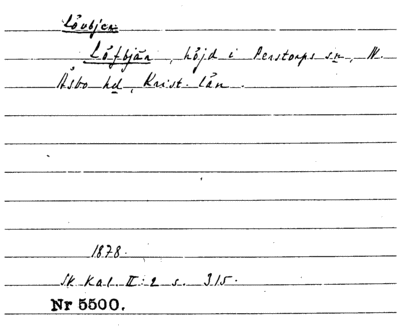 Lövbjer
Löfbjär, höjd i Perstorps sn, N.
Åsbo hd, Krist. län.
1878.
Sk. Kal. II: 2 s. 315.
Nr 5500.